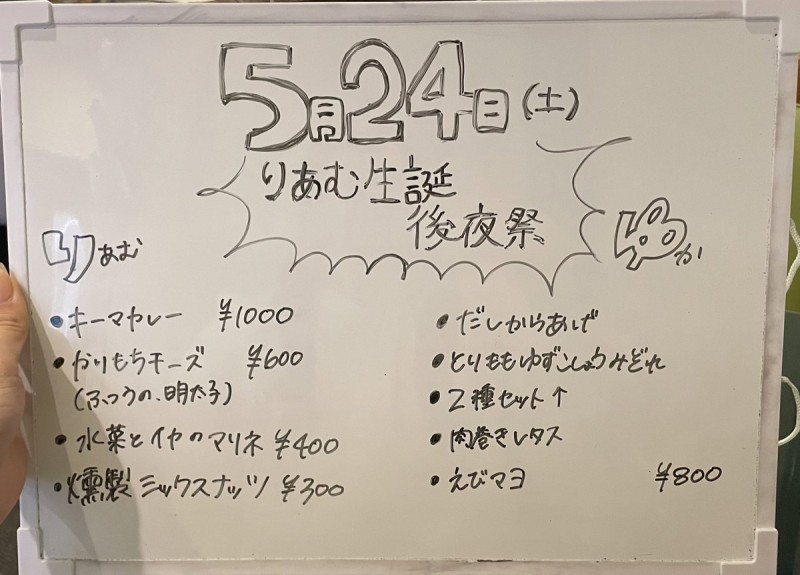 5月24日(土)
りあむ生誕
後夜祭
りあむ
・キーマカレー ¥1000
・かりもちチーズ ¥600
(ふつうの、明太子)
・水菜とイカのマリネ ¥400
・燻製ミックスナッツ ¥300
ゆか
・だしからあげ
・とりももゆずこしょうみぞれ
・2種セット↑
・肉巻きレタス
・えびマヨ ¥800